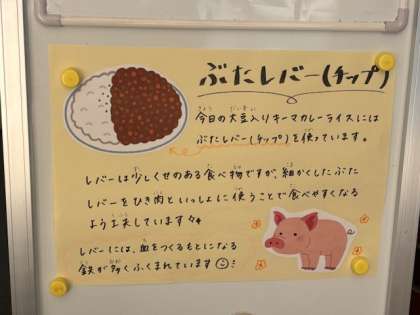 ぶたレバー(チップ)
今日の大豆入りキーマカレーライスには
ぶたレバー(チップ)を使っています。
レバーは少しくせのある食べ物ですが、細かくしたぶた
レバーをひき肉といっしょに使うことで食べやすくなる
よう工夫しています
レバーには、血をつくるもとになる
鉄が多くふくまれています